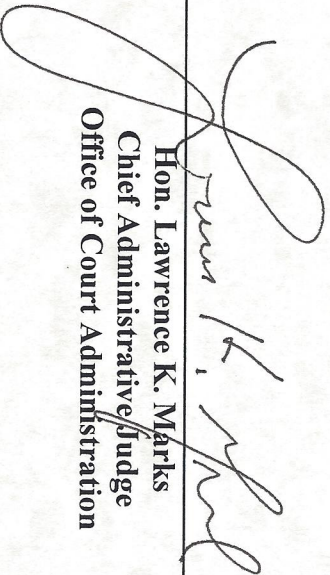 Hon. Lawrence K. Marks
Chief Administrative Judge
Office of Court Administration